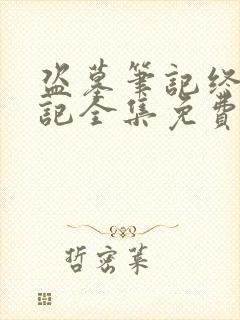 盗墓筆記终
記全集免費
哲密葉